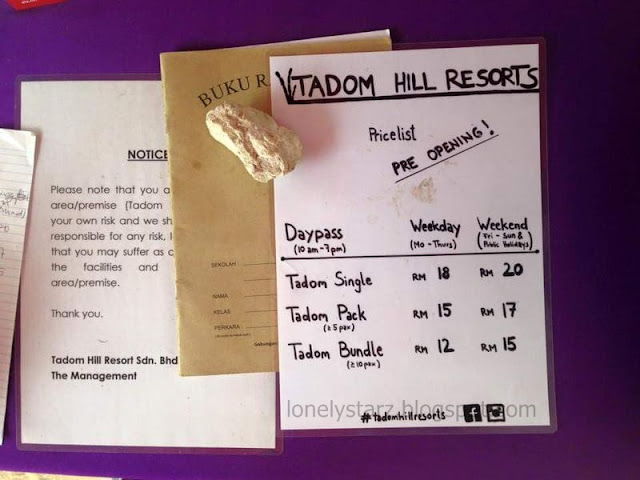 NOTICE
Please note that you a
area/premise (Tadom
your own risk and we sh
responsible for any risk, l
that you may suffer as c
the facilities and
area/premise.
Thank you.
Tadom Hill Resort Sdn. Bhd
The Management
BUKU R
SEKOLAH :
NAMA :
KELAS :
PERKARA :
TADOM HILL RESORTS
Pricelist
PRE OPENING!
Daypass Weekday Weekend
(10 am - 7 pm) (Mo - Thurs) (Fri - Sun & Public Holidays)
Tadom Single RM 18 RM 20
Tadom Pack RM 15 RM 17
(≥ 5 pax)
Tadom Bundle RM 12 RM 15
(≥ 10 pax)
lonelystarz.blogspot.com
#tadomhillresorts